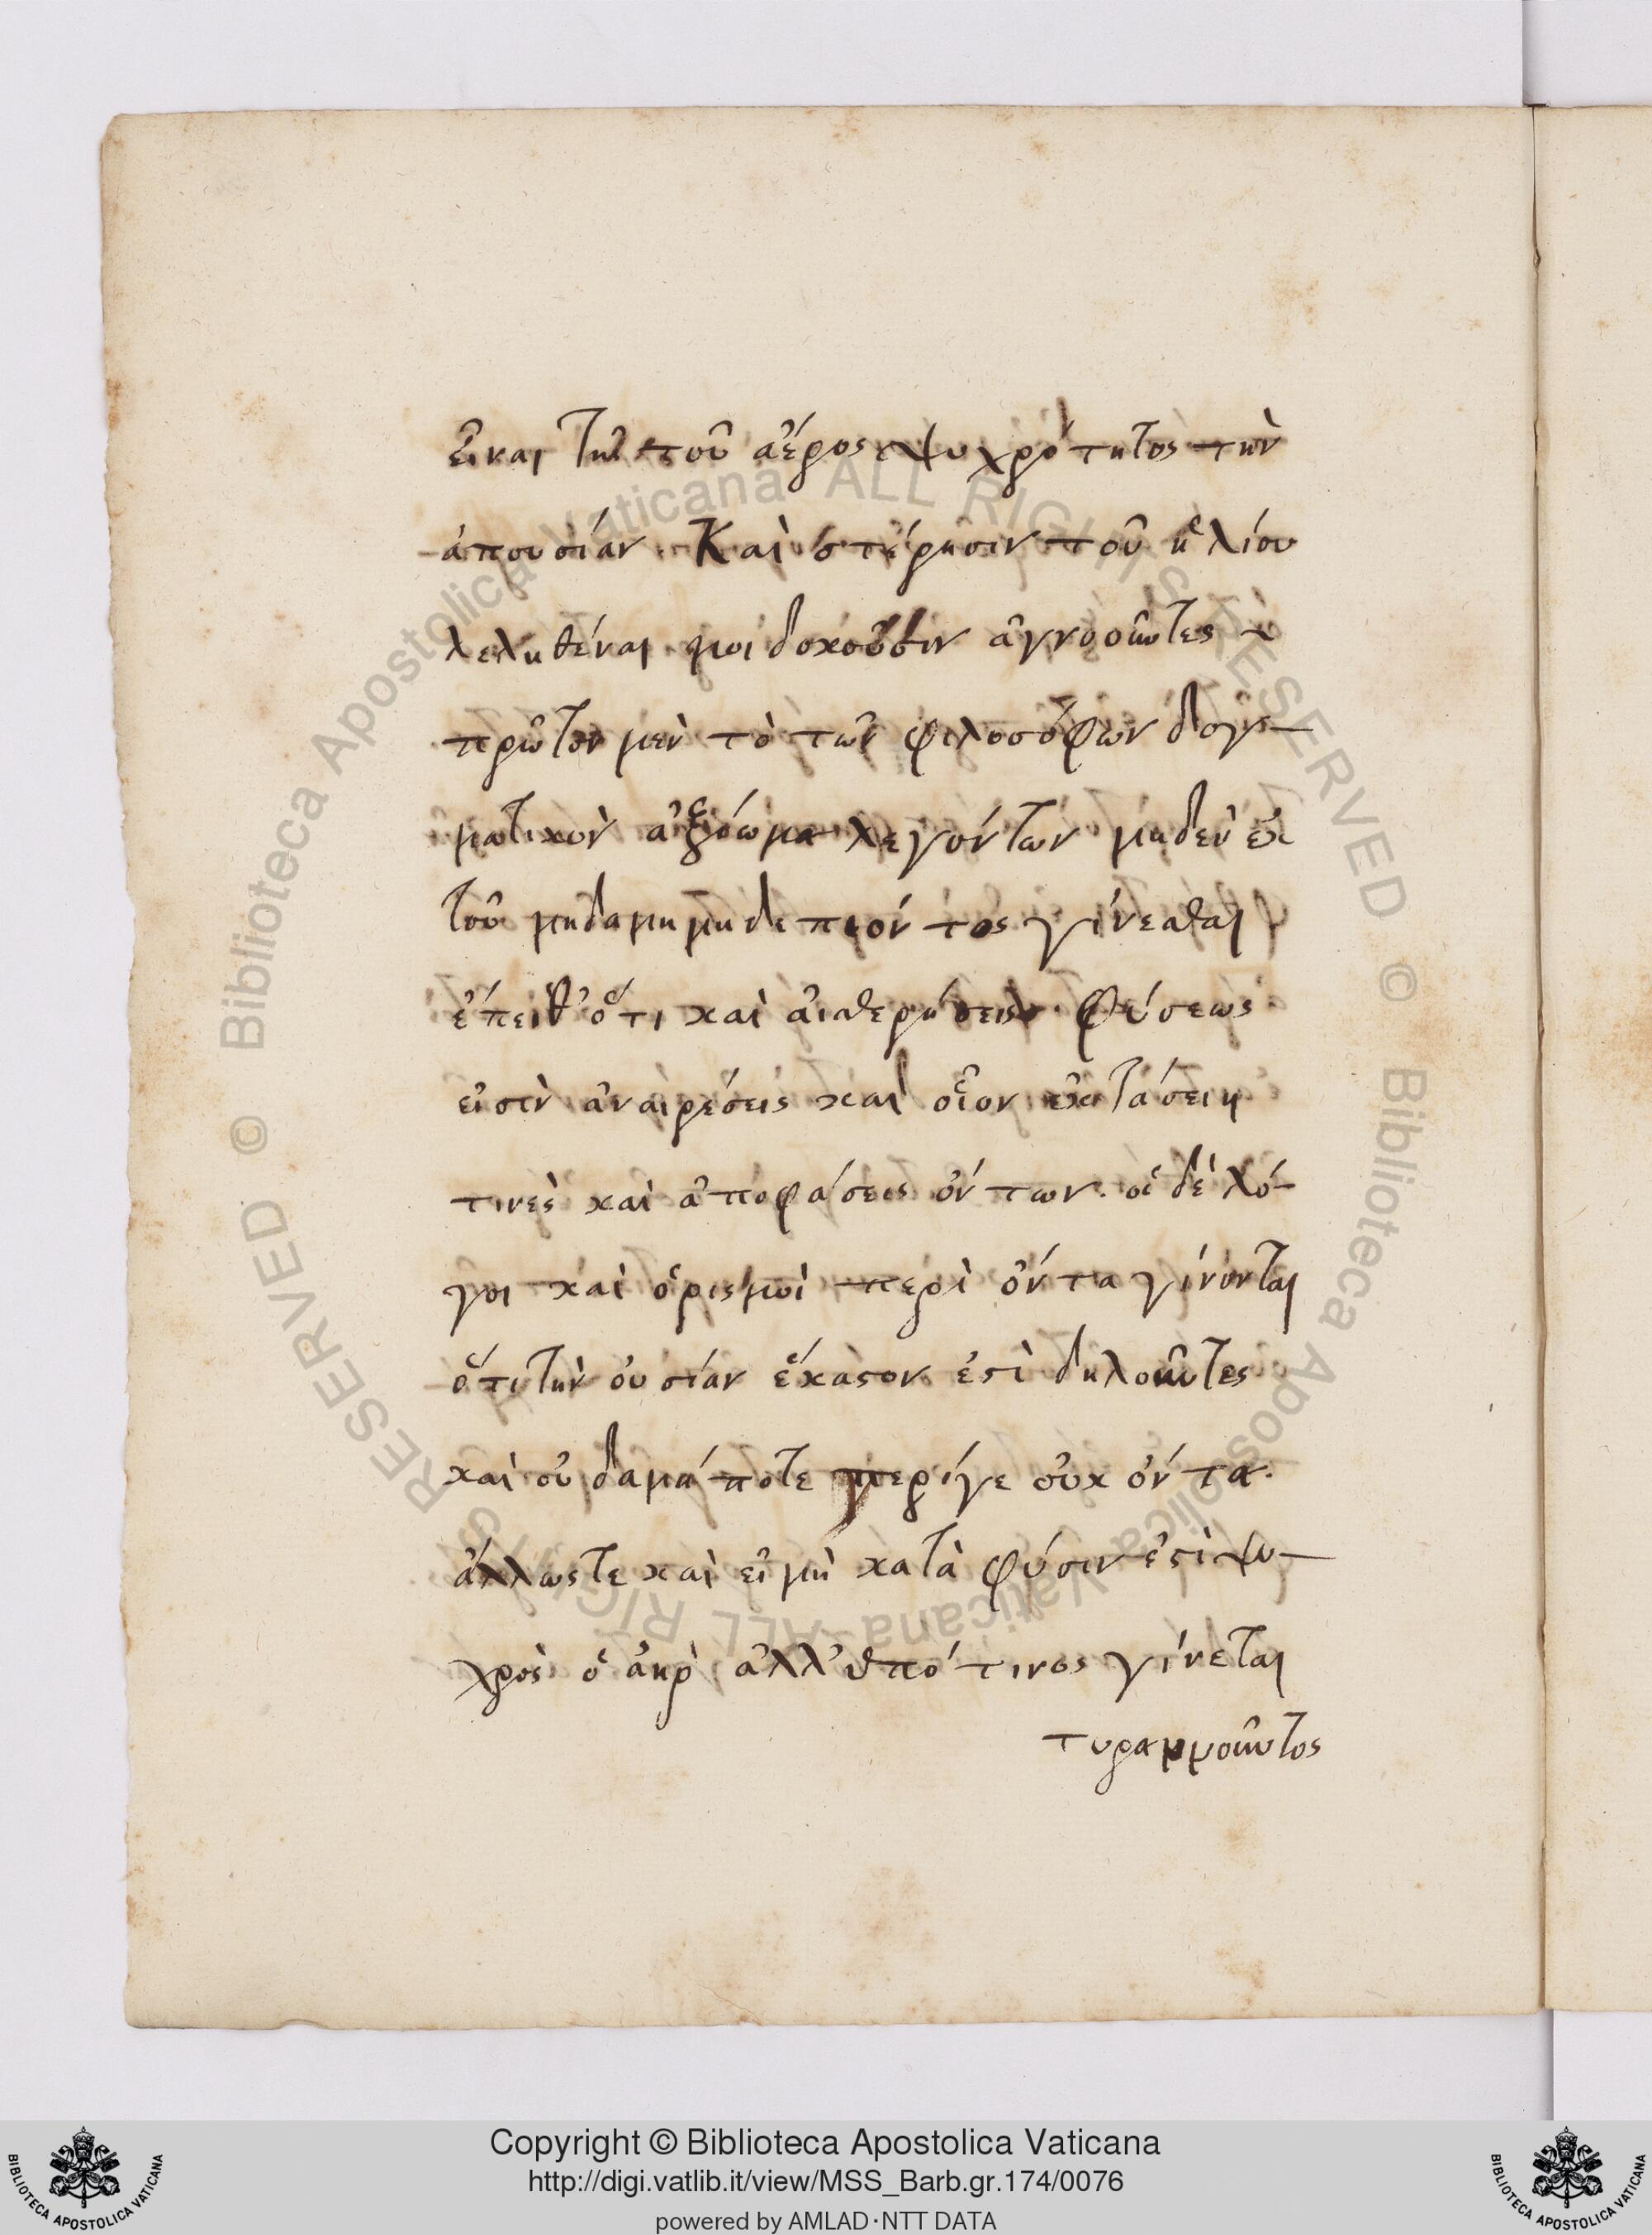 εἶναι τῆς τοῦ ἀέρος ψυχρότητος τὴν
ἀπουσίαν καὶ στέρησιν τοῦ ἡλίου
λεληθέναι μοι δοκοῦσιν ἀγνοοῦντες
πρῶτον μὲν τὸ τῶν φιλοσόφων δογ-
ματικὸν ἀξίωμα λεγόντων μηδὲν ἐκ
τοῦ μηδαμῆ μηδέπω ὄντος γίνεσθαι
ἔπειθ' ὅτι καὶ αἱ στερήσεις φύσεως
εἰσὶν ἀναιρέσεις καὶ οἷον ἐκστάσεις
τινὲς καὶ ἀποφάσεις ὄντων. οἱ δὲ λό-
γοι καὶ ὁρισμοὶ περὶ ὄντα γίνονται
ὅτι τὴν οὐσίαν ἕκαστον ἐστὶ δηλοῦντες
καὶ οὐδαμά ποτε περί γε οὐκ ὄντα.
ἄλλωστε καὶ εἰ μὴ κατὰ φύσιν ἐστὶ ψυ-
χρὸς ὁ ἀὴρ ἀλλ' ὑπό τινος γίνεται
τυραννοῦντος
Copyright © Biblioteca Apostolica Vaticana
http://digi.vatlib.it/view/MSS_Barb.gr.174/0076
powered by AMLAD·NTT DATA
BIBLIOTECA APOSTOLICA VATICANA
BIBLIOTECA APOSTOLICA VATICANA
© Biblioteca Apostolica Vaticana ALL RIGHTS RESERVED © Biblioteca Apostolica Vaticana ALL RIGHTS RESERVED